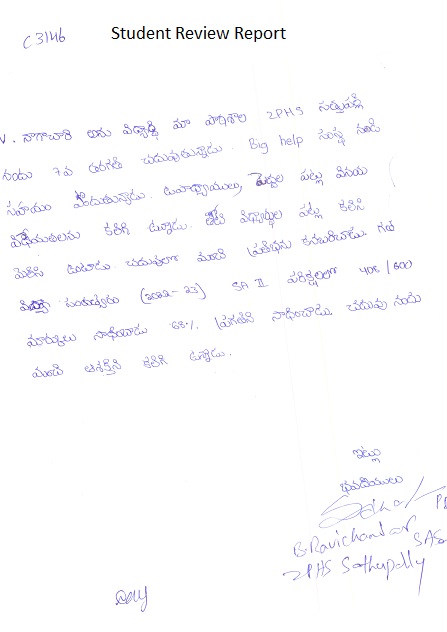 C3146 Student Review Report
V. నాగాచారి అను విద్యార్థి మా పాఠశాల ZPHS సత్తుపల్లి
నందు 7వ తరగతి చదువుతున్నాడు. Big help సంస్థ నుండి
సహాయం పొందుతున్నాడు. ఉపాధ్యాయులు, పెద్దల పట్ల వినయ
విధేయతలను కలిగి ఉన్నాడు. తోటి విద్యార్థుల పట్ల కలిసి
మెలిసి ఉంటాడు. చదువులో మంచి ప్రతిభను కనబరిచాడు. గత
విద్యా సంవత్సరం (2022-23) SA II పరీక్షలలో 408/600
మార్కులు సాధించాడు 68% ప్రగతిని సాధించాడు. చదువు నందు
మంచి ఆసక్తిని కలిగి ఉన్నాడు.
ఇట్లు
భవదీయులు
B. Ravichander SA
ZPHS Sathupally